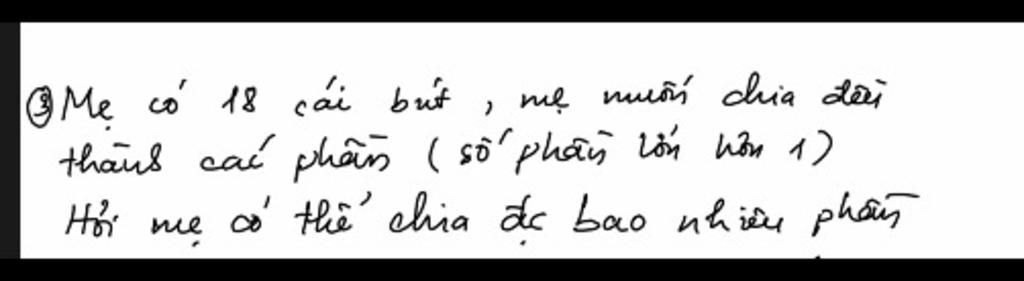 ③ Mẹ có 18 cái bút, mẹ muốn chia đều
thành các phần (số phần lớn hơn 1)
Hỏi mẹ có thể chia đc bao nhiêu phần